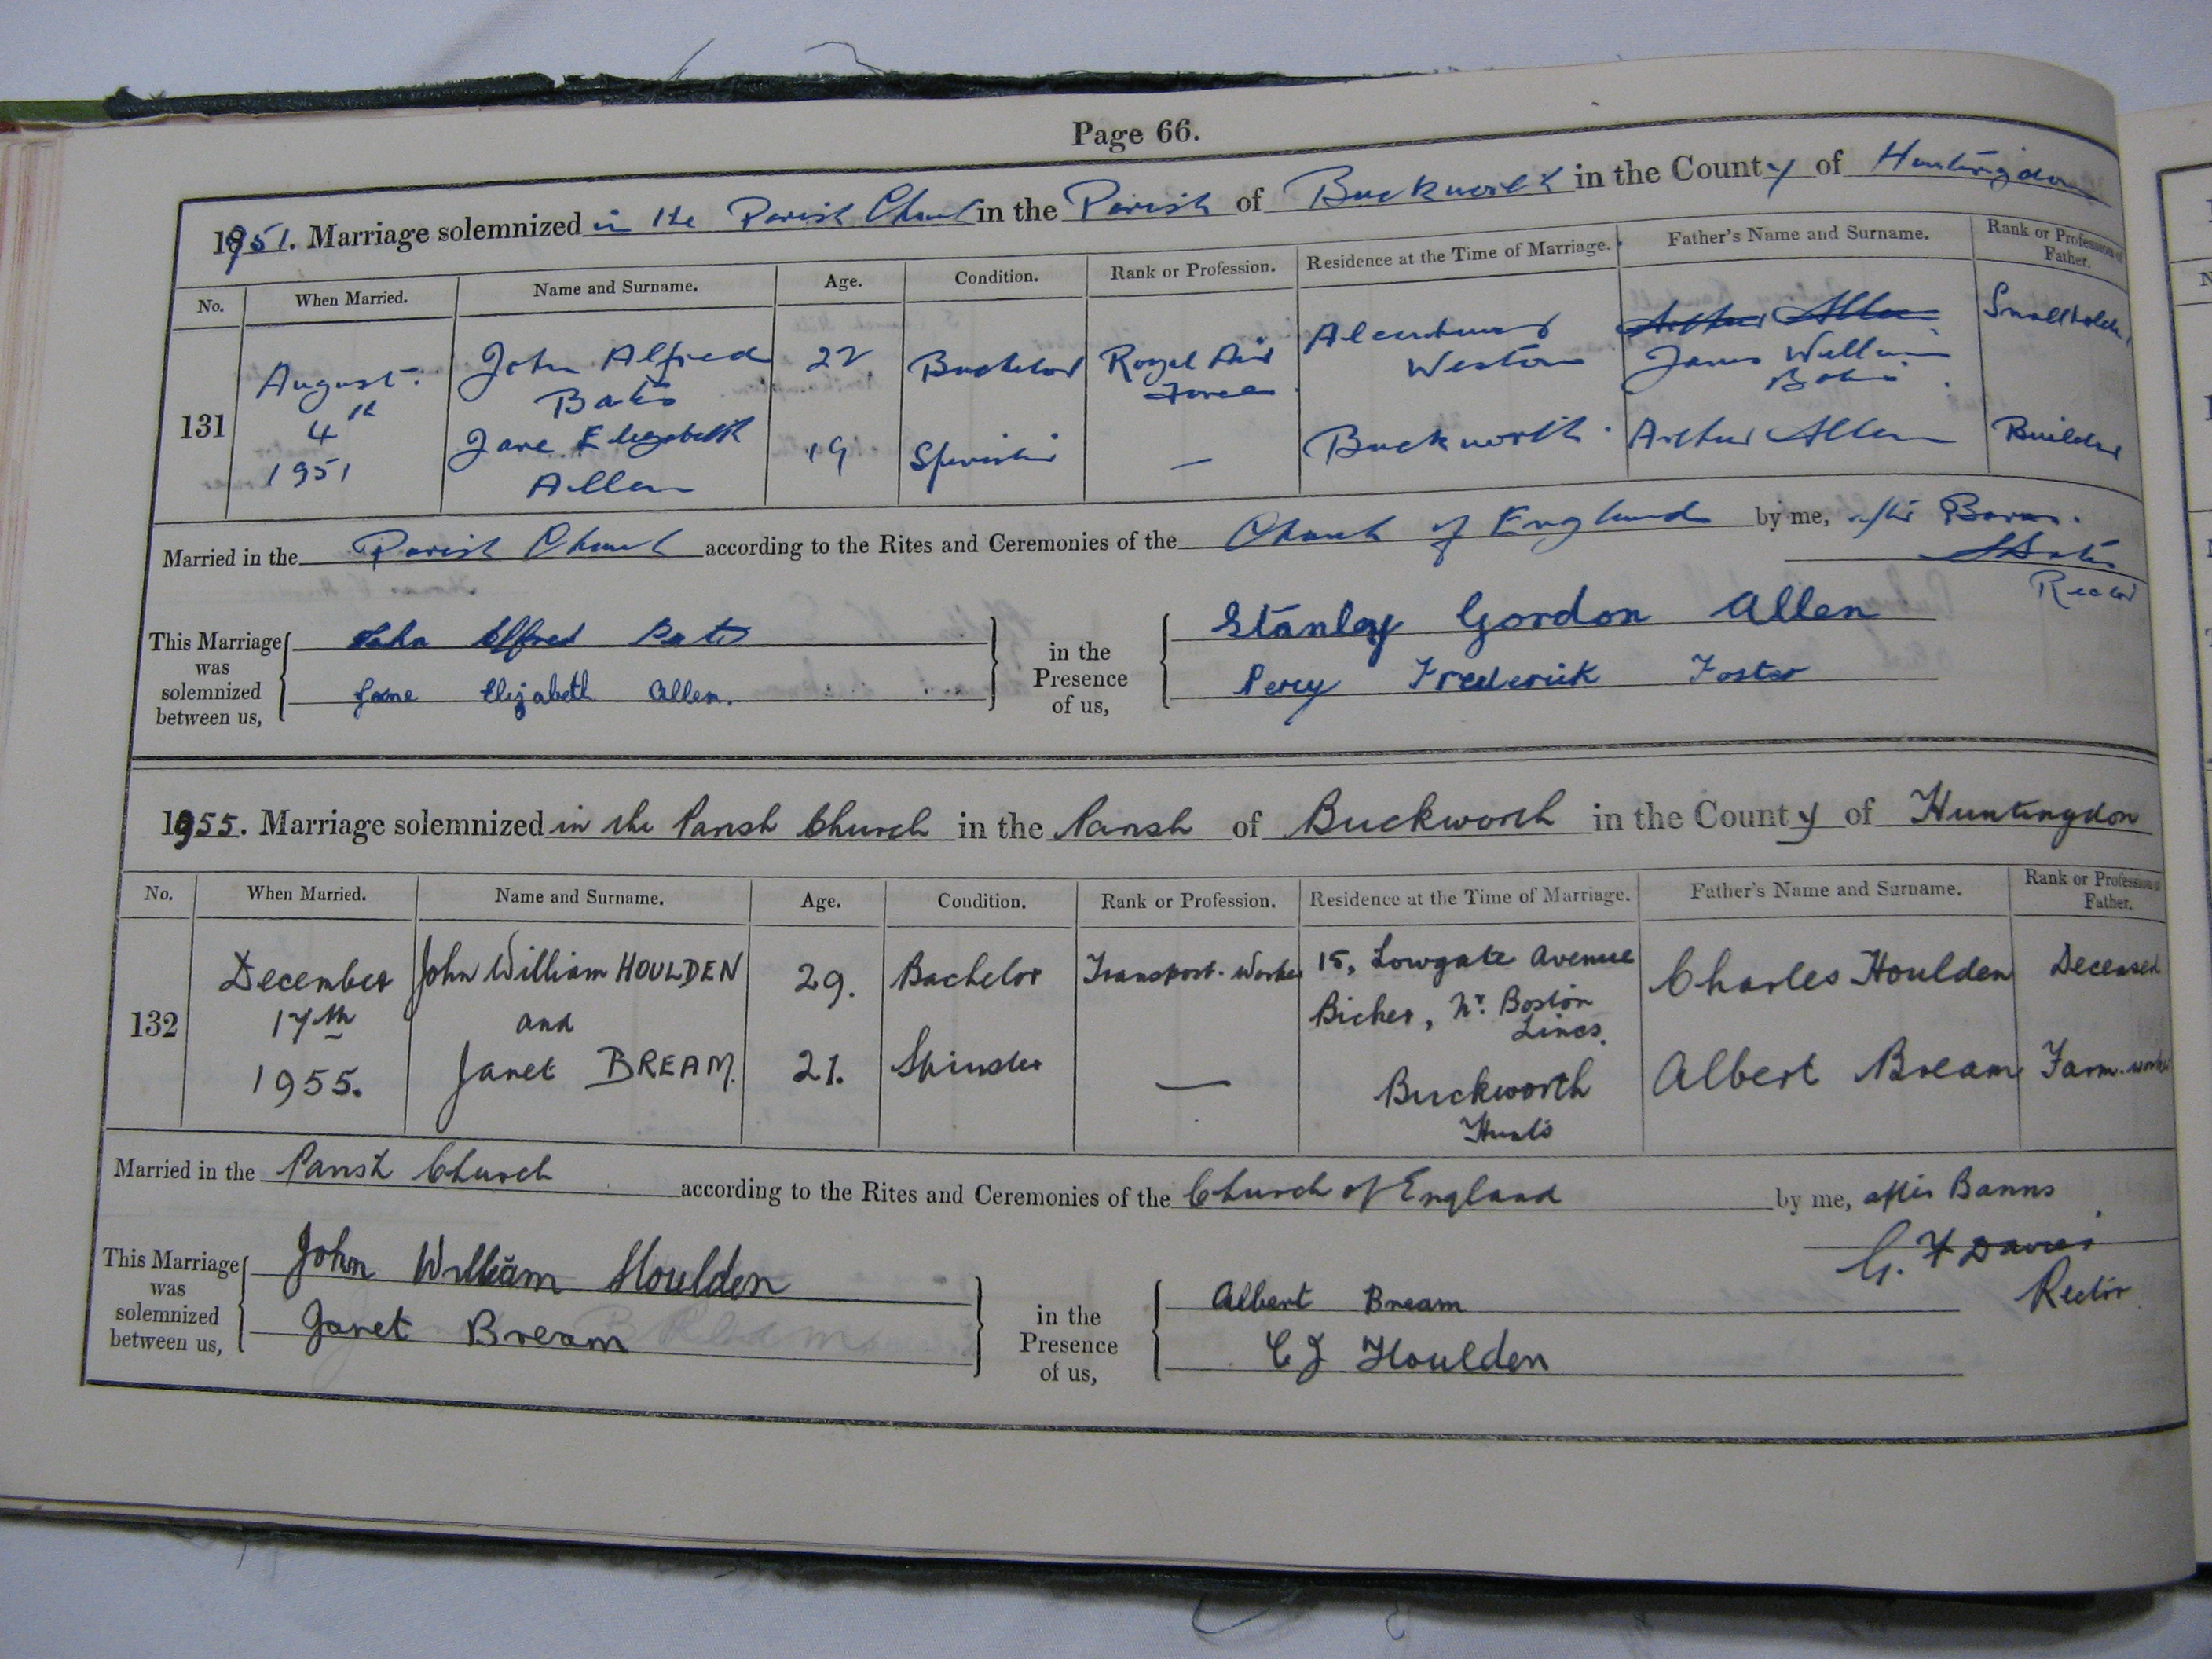 Page 66.
1951. Marriage solemnized in the Parish Church in the Parish of Buckworth in the County of Huntingdon
No. When Married. Name and Surname. Age. Condition. Rank or Profession. Residence at the Time of Marriage. Father's Name and Surname. Rank or Profession of Father.
131
August 4th 1951
John Alfred Bates 22 Bachelor Royal Air Force Weston Arthur Allen James William Smallholder
Jane Elizabeth Allen 19 Spinster — Buckworth Arthur Allen Builder
Married in the Parish Church according to the Rites and Ceremonies of the Church of England by me, after Banns.
Rector
This Marriage was solemnized between us,
John Alfred Bates
Jane Elizabeth Allen.
in the Presence of us,
Stanley Gordon Allen
Percy Frederick Foster
1955. Marriage solemnized in the Parish Church in the Parish of Buckworth in the County of Huntingdon
No. When Married. Name and Surname. Age. Condition. Rank or Profession. Residence at the Time of Marriage. Father's Name and Surname. Rank or Profession of Father.
132
December 17th 1955.
John William HOULDEN 29. Bachelor Transport-Worker 15, Lowgate Avenue Bicker, Nr. Boston Lincs. Charles Houlden Deceased
and
Janet BREAM. 21. Spinster — Buckworth Hunts Albert Bream Farm-worker
Married in the Parish Church according to the Rites and Ceremonies of the Church of England by me, after Banns
G. F Davies
Rector
This Marriage was solemnized between us,
John William Houlden
Janet Bream
in the Presence of us,
Albert Bream
C J Houlden